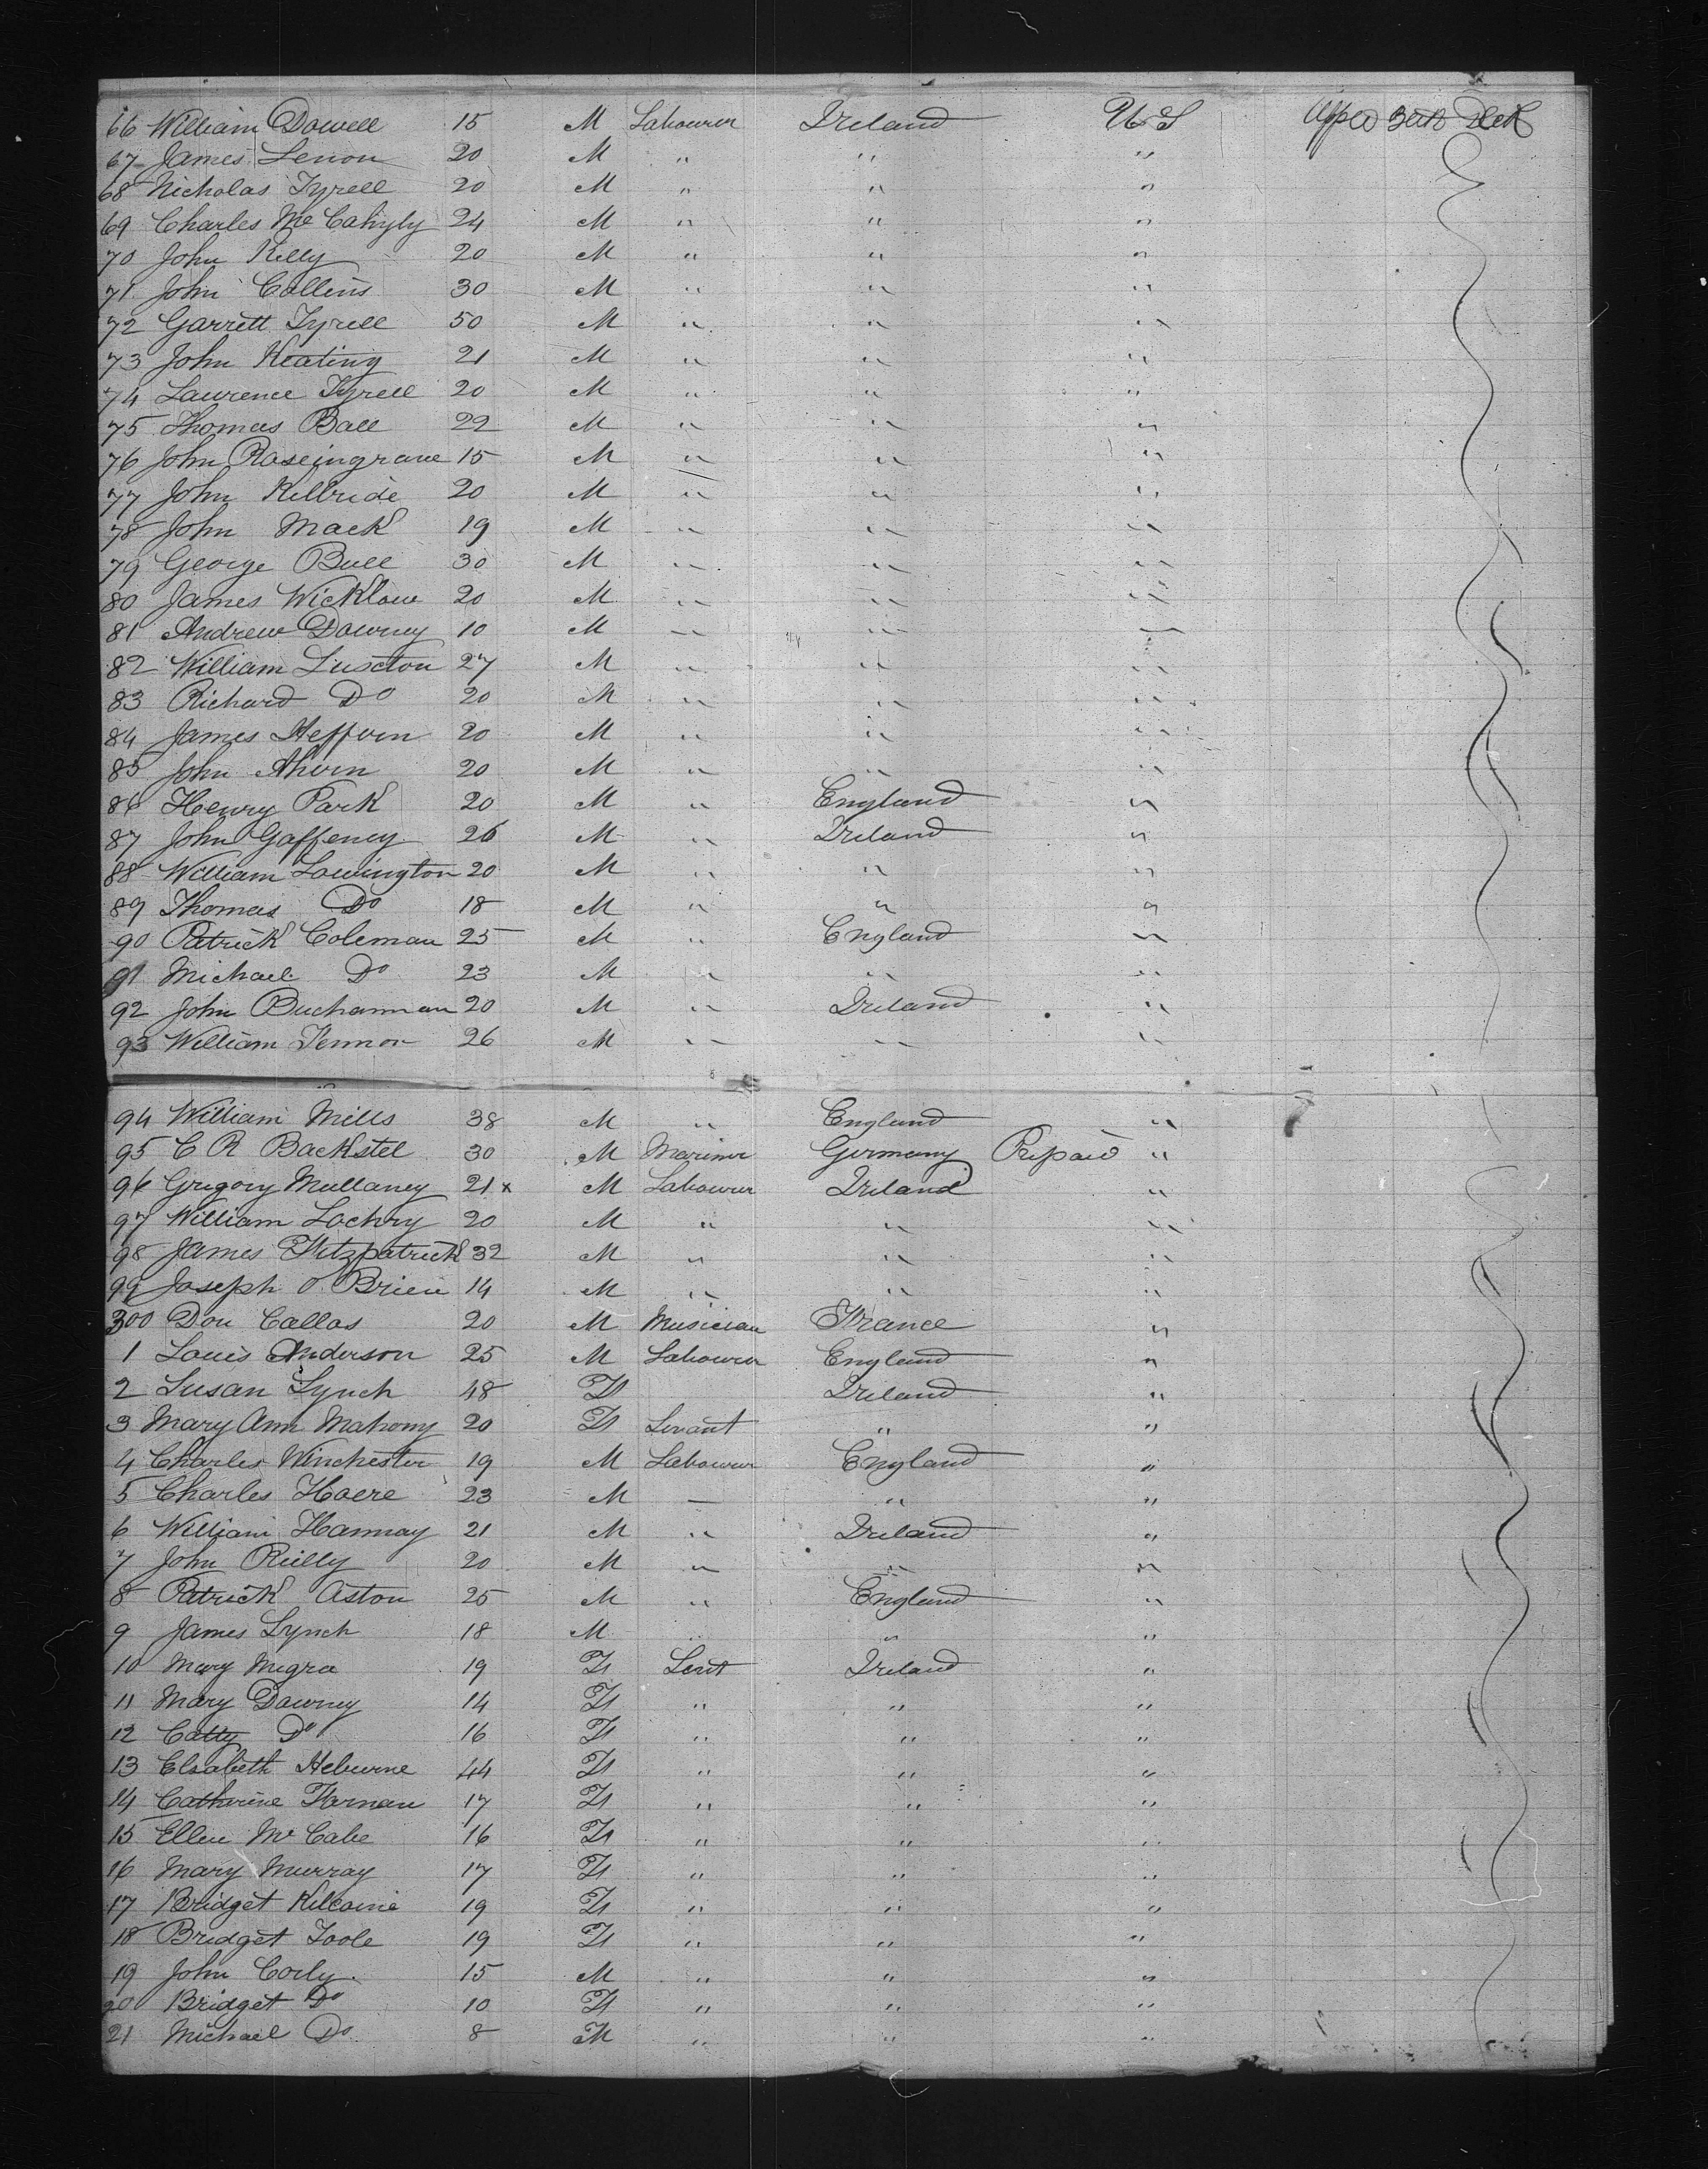 66 William Dowell 15 M Labourer Ireland U S
67 James Lenon 20 M " " "
68 Nicholas Tyrell 20 M " " "
69 Charles Mc 24 M " " "
70 John Kelly 20 M " " "
71 John Collins 30 M " " "
72 Garrett Tyrell 50 M " " "
73 John Keating 21 M " " "
74 Laurence Tyrell 20 M " " "
75 Thomas Ball 22 M " " "
76 John Roseingrave 15 M " " "
77 John Kilbride 20 M " " "
78 John Mack 19 M " " "
79 George Bull 30 M " " "
80 James Wicklow 20 M " " "
81 Andrew Downey 10 M " " "
82 William Luscton 27 M " " "
83 Richard Do 20 M " " "
84 James Heffron 20 M " " "
85 John Ahern 20 M " " "
86 Henry Park 20 M " England "
87 John Gaffeney 26 M " Ireland "
88 William Lowington 20 M " " "
89 Thomas Do 18 M " " "
90 Patrick Coleman 25 M " England "
91 Michael Do 23 M " " "
92 John Buchannan 20 M " Ireland "
93 William Tennor 26 M " " "
94 William Mills 38 M " England "
95 C R Backstel 30 M Mariner Germany Prepaid "
96 Gregory Mullaney 21 x M Labourer Ireland "
97 William Lochry 20 M " " "
98 James Fitzpatrick 32 M " " "
99 Joseph O Brien 14 M " " "
300 Don Callas 20 M Musician France "
1 Louis Anderson 25 M Labourer England "
2 Susan Lynch 48 F Ireland "
3 Mary Ann Mahony 20 F Servant " "
4 Charles Winchester 19 M Labourer England "
5 Charles Hoere 23 M — " "
6 William Hannay 21 M " Ireland "
7 John Reilly 20 M " " "
8 Patrick Aston 25 M " England "
9 James Lynch 18 M " " "
10 Mary Megra 19 F Servt Ireland "
11 Mary Downey 14 F " " "
12 Catty Do 16 F " " "
13 Elsabeth Heburne 44 F " " "
14 Catherine Farnan 17 F " " "
15 Ellen Mc Cabe 16 F " " "
16 Mary Murray 17 F " " "
17 Bridget Kilcoine 19 F " " "
18 Bridget Toole 19 F " " "
19 John Corly 15 M " " "
20 Bridget Do 10 F " " "
21 Michael Do 8 M " " "